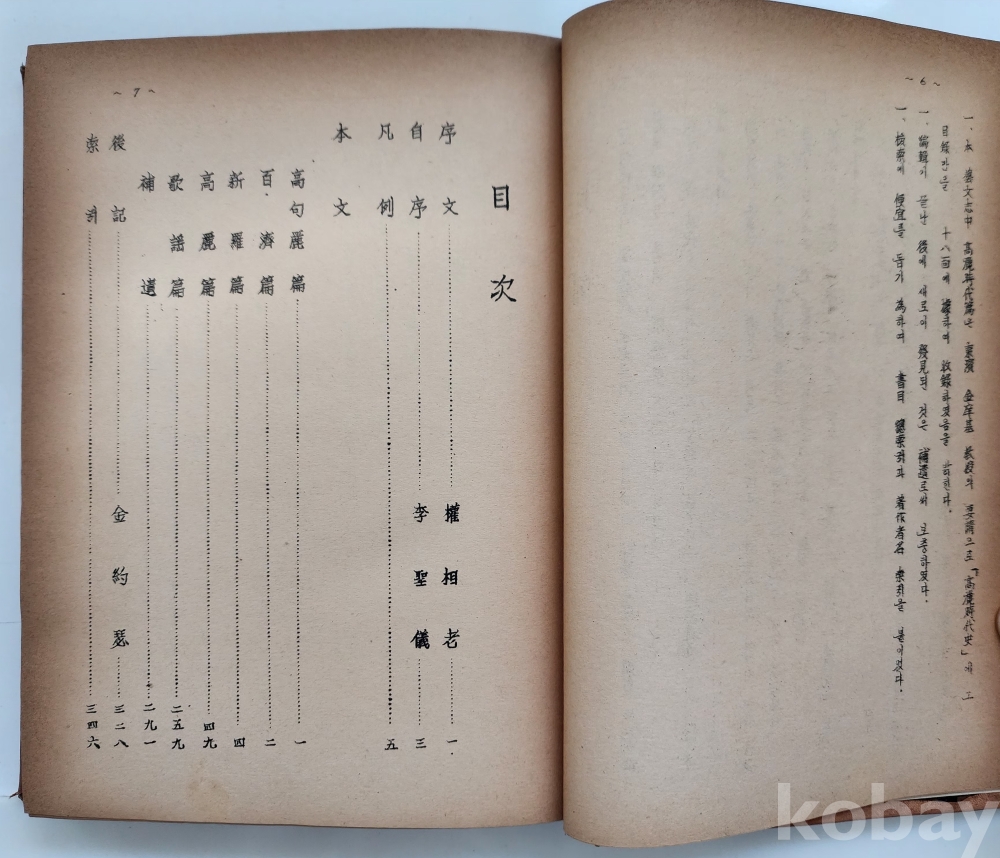 ~ 6 ~
一、本 藝文志中 高麗時代篇은 東濱 金庠基 敎授의 要請으로「高麗時代史」에 그
目錄만을 十八面에 하여 收錄하였음을 밝힌다.
一、編輯이 끝난 後에 새로이 發見된 것은 補遺로써 보충하였다.
一、檢索에 便宜를 돕기 爲하여 書目 索引과 著作者名 索引을 붙이었다.
~ 7 ~
目次
序文 權相老 一
自序 李聖儀 三
凡例 五
本文
高句麗篇 一
百濟篇 二
新羅篇 四
高麗篇 四九
歌謠篇 二五九
補遺 二九一
後記 金約瑟 三二八
索引 三四六
kobay